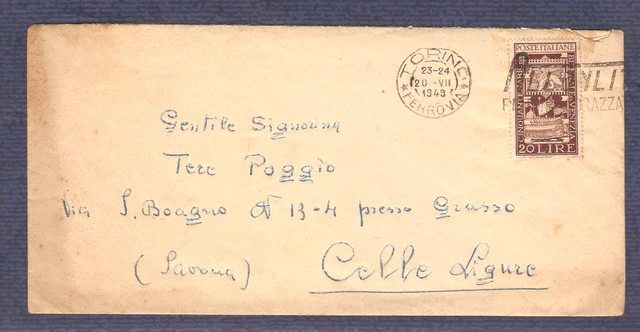 TORINO
23-24
20 -VII
1949
FERROVIA
POSTE ITALIANE
BIENNALE VENEZIA
CINQUANTENARIO
20 LIRE
RAZZA
Gentile Signorina
Tere Poggio
Via S. Boagno N 13-4 presso Grasso
(Savona) Celle Ligure